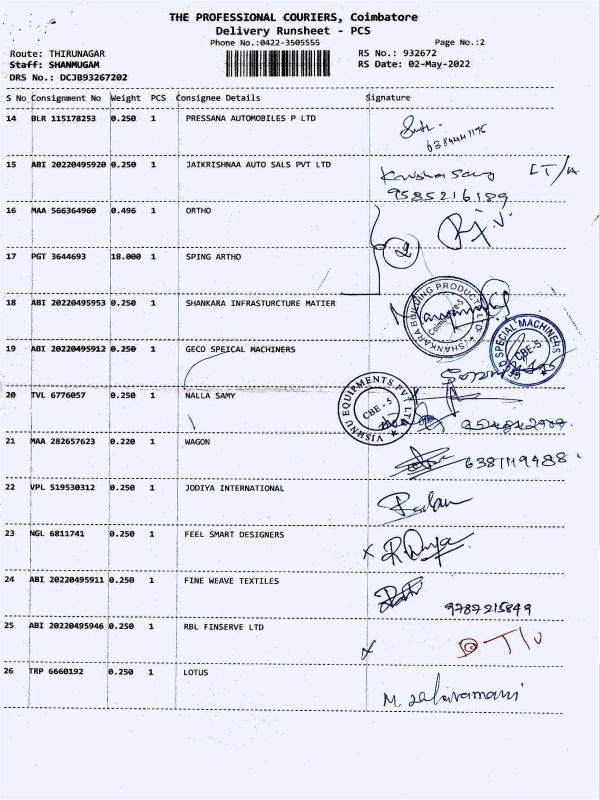 THE PROFESSIONAL COURIERS, Coimbatore
Delivery Runsheet - PCS
Phone No.:0422-3505555
Page No.:2
Route: THIRUNAGAR
RS No.: 932672
Staff: SHANMUGAM
RS Date: 02-May-2022
DRS No.: DCJB93267202
S No Consignment No Weight PCS Consignee Details Signature
14 BLR 115178253 0.250 1 PRESSANA AUTOMOBILES P LTD
15 ABI 20220495920 0.250 1 JAIKRISHNAA AUTO SALS PVT LTD
9585216189
16 MAA 566364960 0.496 1 ORTHO
17 PGT 3644693 18.000 1 SPING ARTHO
2
18 ABI 20220495953 0.250 1 SHANKARA INFRASTURCTURE MATIER
SHANKARA BUILDING PRODUCTS LTD
Coimbatore-5
19 ABI 20220495912 0.250 1 GECO SPEICAL MACHINERS
SPECIAL MACHINERS
CBE-5
20 TVL 6776057 0.250 1 NALLA SAMY
VISHNU EQUIPMENTS PVT LTD
CBE - 5
21 MAA 282657623 0.220 1 WAGON
22 VPL 519530312 0.250 1 JODIYA INTERNATIONAL
23 NGL 6811741 0.250 1 FEEL SMART DESIGNERS
x
24 ABI 20220495911 0.250 1 FINE WEAVE TEXTILES
9787215849
25 ABI 20220495946 0.250 1 RBL FINSERVE LTD
x
26 TRP 6660192 0.250 1 LOTUS